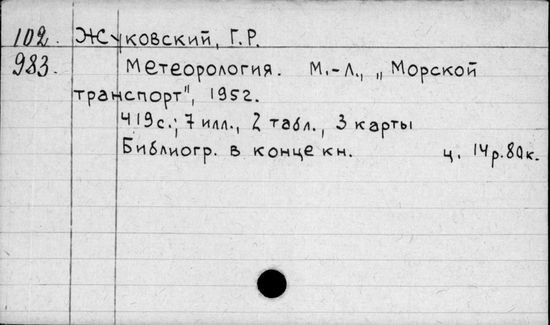 102. Жуковский, Г.Р.
983. Метеорология. М.-Л., „Морской
транспорт", 1952.
419с.; 7 илл., 2 табл., 3 карты
Библиогр. в конце кн. ц. 14р.80к.